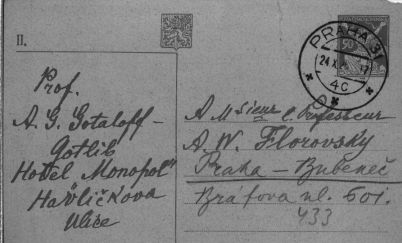 II.
PRAHA 31
24 X
4C
50
Prof.
A. G. Gotaloff -
Gotlib
Hotel "Monopol"
Havlíčkova
Ulice
A Msieur le Professeur
A. W. Florovsky
Praha - Bubeneč
Bráfova ul. 601.
433